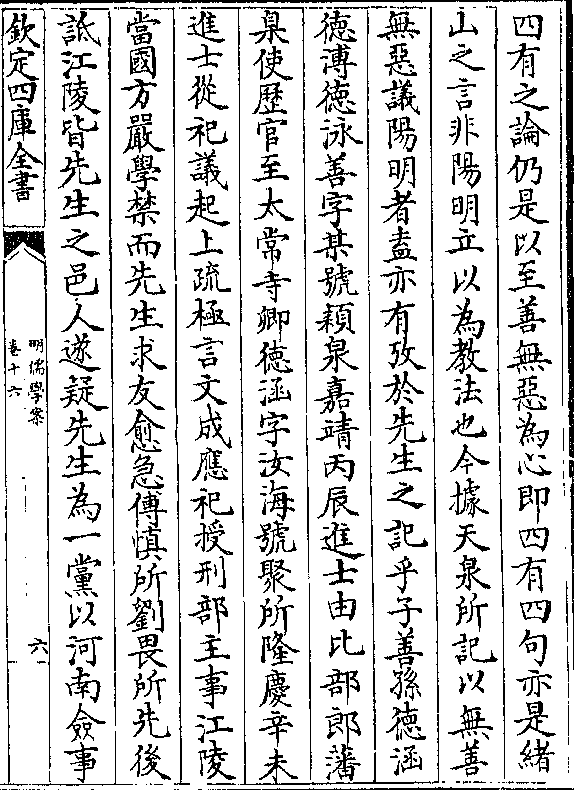 四有之論仍是以至善無惡為心即四有四句亦是緒
山之言非陽明立以為教法也今據天泉所記以無善
無惡議陽明者盍亦有攷於先生之記乎子善孫德涵
德溥德泳善字某號頴泉嘉靖丙辰進士由比部郎藩
臬使歷官至太常寺卿德涵字汝海號聚所隆慶辛未
進士從祀議起上疏極言文成應祀授刑部主事江陵
當國方嚴學禁而先生求友愈急傅慎所劉畏所先後
詆江陵皆先生之邑人遂疑先生為一黨以河南僉事
欽定四庫全書
明儒學案
卷十六
六